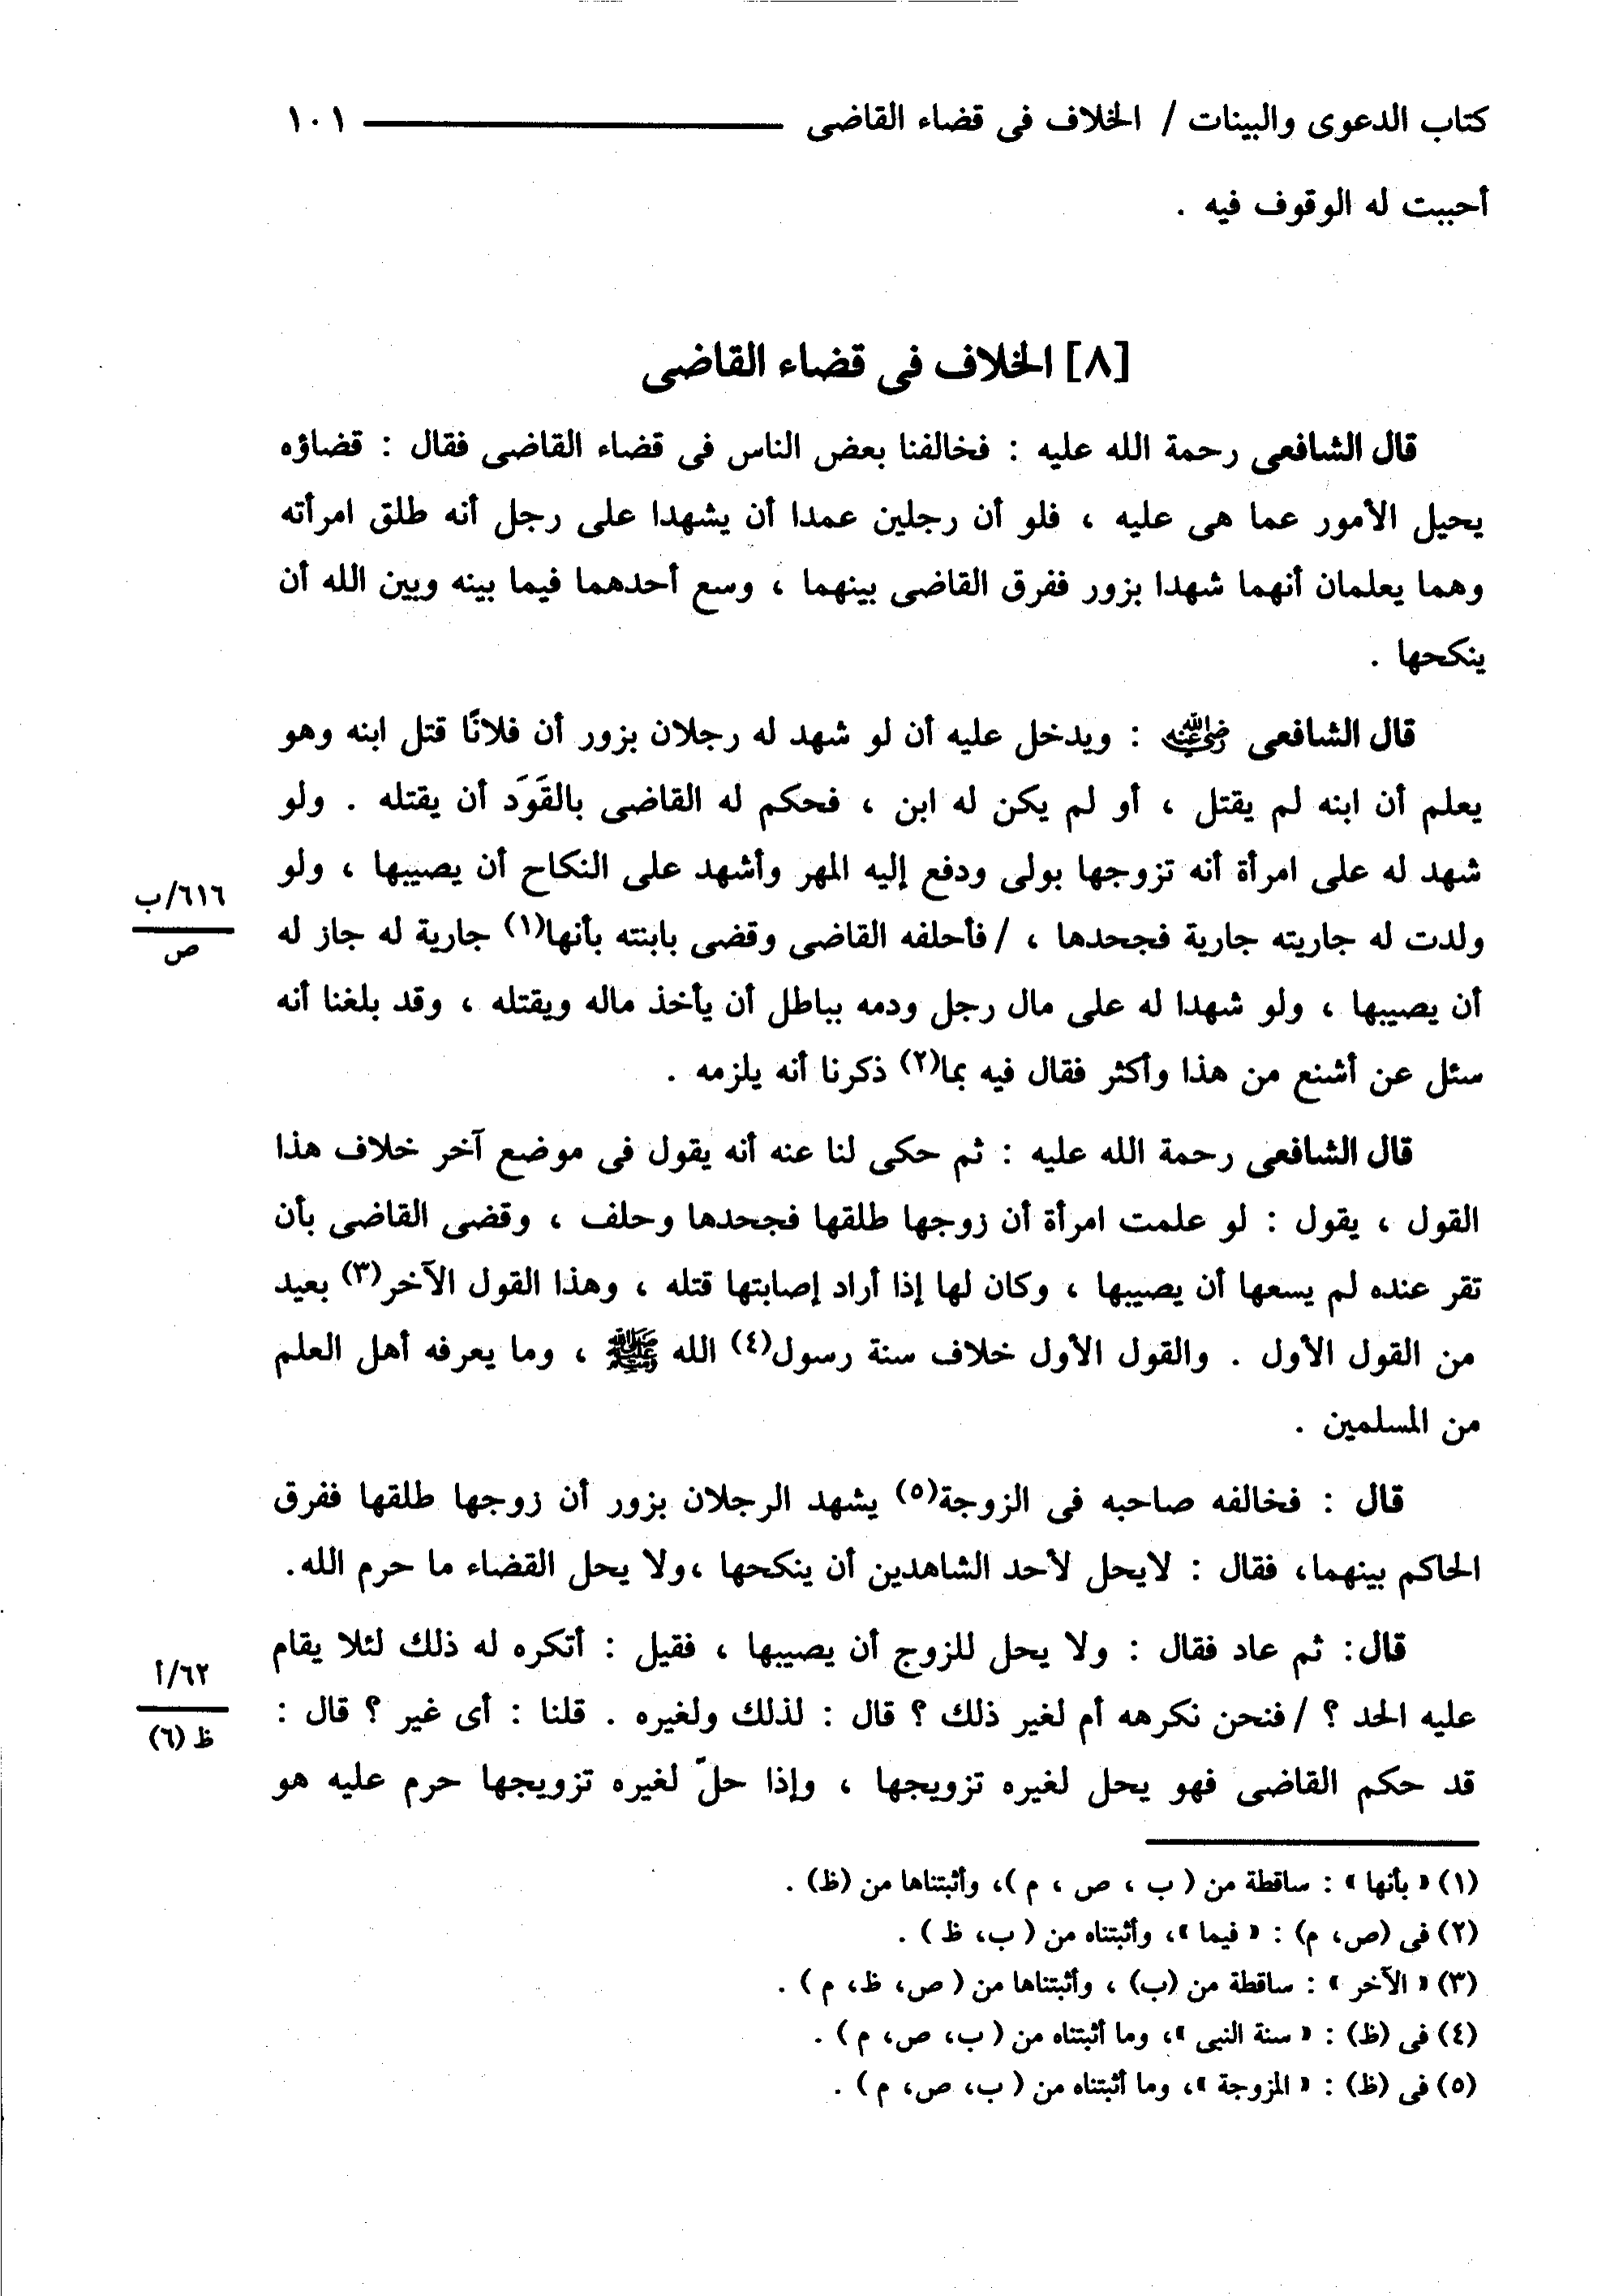 كتاب الدعوى والبينات / الخلاف فى قضاء القاضى ــــــــــــــــ ١٠١
أحببت له الوقوف فيه .
[٨] الخلاف فى قضاء القاضى
قال الشافعى رحمة الله عليه : فخالفنا بعض الناس فى قضاء القاضى فقال : قضاؤه
يحيل الأمور عما هى عليه ، فلو أن رجلين عمدا أن يشهدا على رجل أنه طلق امرأته
وهما يعلمان أنهما شهدا بزور ففرق القاضى بينهما ، وسع أحدهما فيما بينه وبين الله أن
ينكحها .
قال الشافعى رضي الله عنه : ويدخل عليه أن لو شهد له رجلان بزور أن فلانًا قتل ابنه وهو
يعلم أن ابنه لم يقتل ، أو لم يكن له ابن ، فحكم له القاضى بالقَوَد أن يقتله . ولو
شهد له على امرأة أنه تزوجها بولى ودفع إليه المهر وأشهد على النكاح أن يصيبها ، ولو
ولدت له جاريته جارية فجحدها ، / فأحلفه القاضى وقضى بابنته بأنها(١) جارية له جاز له
٦١٦/ب
ص
أن يصيبها ، ولو شهدا له على مال رجل ودمه بباطل أن يأخذ ماله ويقتله ، وقد بلغنا أنه
سئل عن أشنع من هذا وأكثر فقال فيه بما(٢) ذكرنا أنه يلزمه .
قال الشافعى رحمة الله عليه : ثم حكى لنا عنه أنه يقول فى موضع آخر خلاف هذا
القول ، يقول : لو علمت امرأة أن زوجها طلقها فجحدها وحلف ، وقضى القاضى بأن
تقر عنده لم يسعها أن يصيبها ، وكان لها إذا أراد إصابتها قتله ، وهذا القول الآخر(٣) بعيد
من القول الأول . والقول الأول خلاف سنة رسول(٤) الله ﷺ ، وما يعرفه أهل العلم
من المسلمين .
قال : فخالفه صاحبه فى الزوجة(٥) يشهد الرجلان بزور أن زوجها طلقها ففرق
الحاكم بينهما، فقال : لايحل لأحد الشاهدين أن ينكحها ،ولا يحل القضاء ما حرم الله.
قال: ثم عاد فقال : ولا يحل للزوج أن يصيبها ، فقيل : أتكره له ذلك لئلا يقام
عليه الحد ؟ / فنحن نكرهه أم لغير ذلك ؟ قال : لذلك ولغيره . قلنا : أى غير ؟ قال :
٦٢/أ
ظ (٦)
قد حكم القاضى فهو يحل لغيره تزويجها ، وإذا حلّ لغيره تزويجها حرم عليه هو
(١) « بأنها » : ساقطة من ( ب ، ص ، م )، وأثبتناها من (ظ) .
(٢) فى (ص، م) : « فيما »، وأثبتناه من ( ب، ظ ) .
(٣) « الآخر » : ساقطة من (ب) ، وأثبتناها من ( ص، ظ، م ) .
(٤) فى (ظ) : « سنة النبى »، وما أثبتناه من ( ب، ص، م ) .
(٥) فى (ظ) : « المزوجة »، وما أثبتناه من ( ب، ص، م ) .